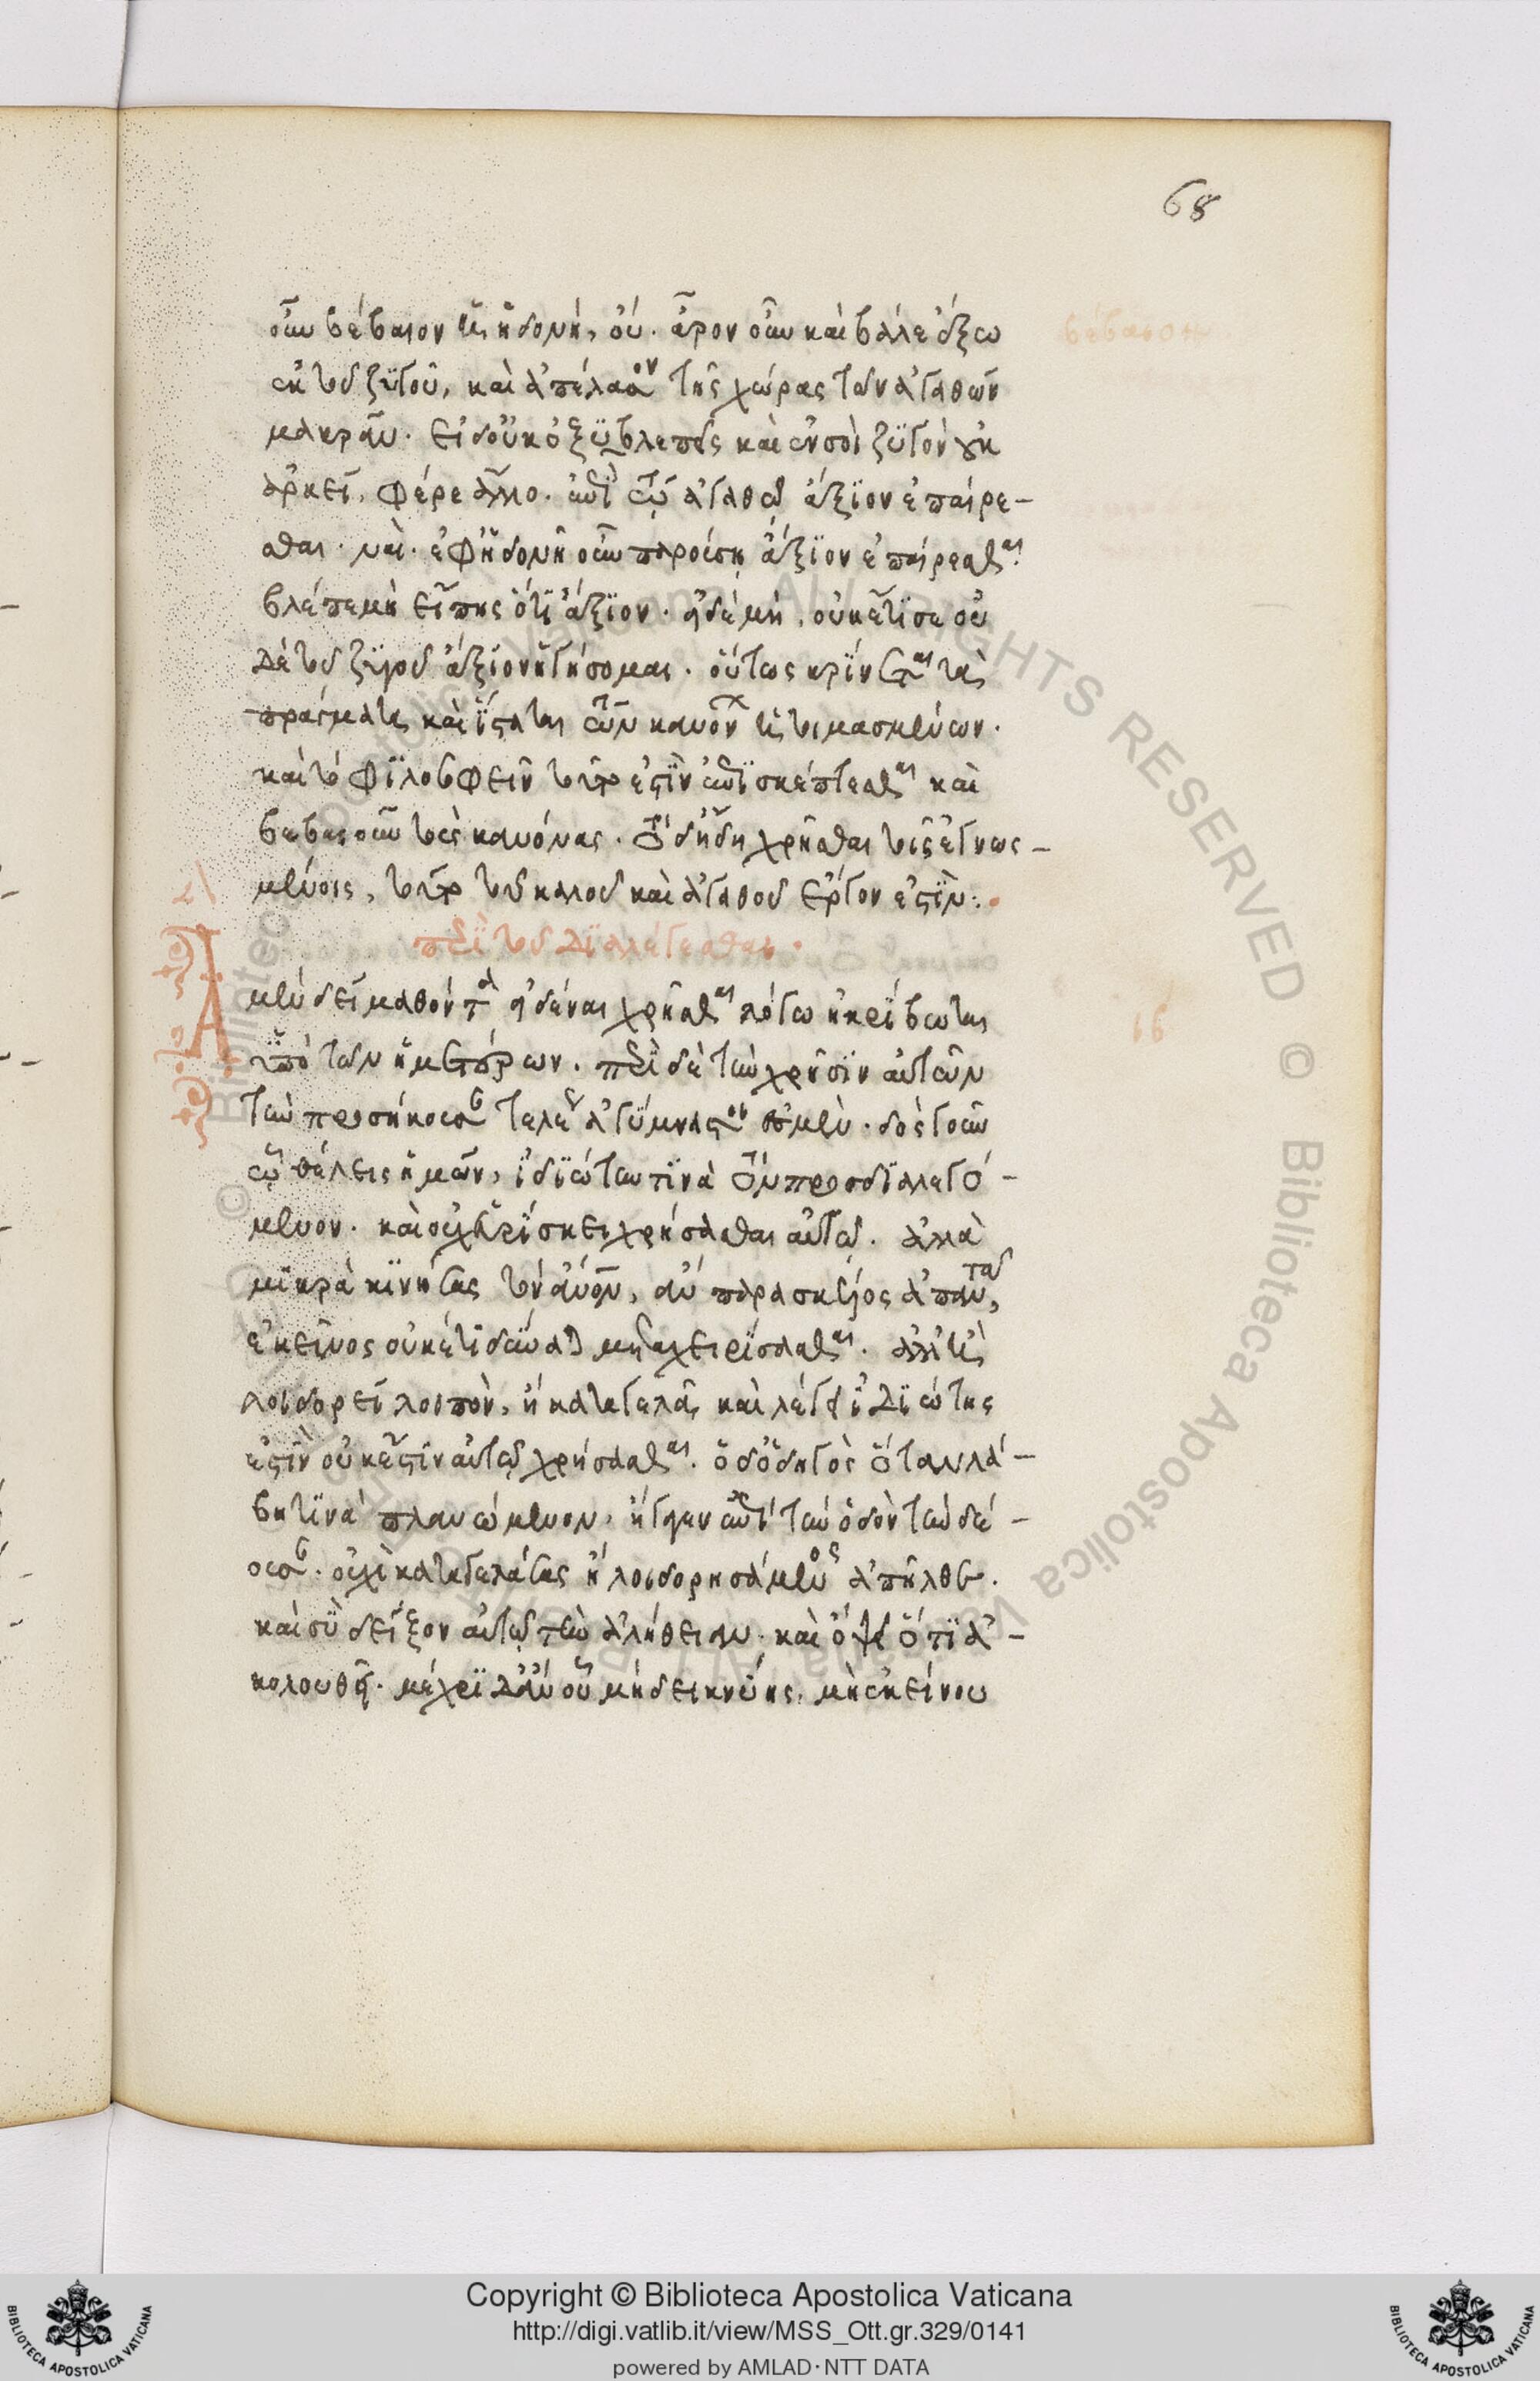 68
οὖν βέβαιον τὶ ἡδονή, οὐ. ἆρον οὖν καὶ βάλε ἔξω
ἐκ τοῦ ζυγοῦ, καὶ ἀπέλασον τῆς χώρας τῶν ἀγαθῶν
μακράν. εἰ δ' οὐκ ὀξυβλεπεῖς καὶ ἕν σοι ζυγὸν οὐκ
ἀρκεῖ, φέρε ἄλλο. ἐπὶ τῷ ἀγαθῷ ἄξιον ἐπαίρε-
σθαι. ναί. ἐφ' ἡδονῇ οὖν παρούσῃ ἄξιον ἐπαίρεσθαι.
βλέπε μὴ εἴπῃς ὅτι ἄξιον. εἰ δὲ μή, οὐκέτι σε οὐ
δὲ τοῦ ζυγοῦ ἄξιον ἡγήσομαι. οὕτως κρίνεται τὰ
πράγματα καὶ ἵσταται τῶν κανόνων ἡτοιμασμένων.
καὶ τὸ φιλοσοφεῖν τοῦτο ἐστὶν ἐπισκέπτεσθαι καὶ
βεβαιοῦν τοὺς κανόνας. τὸ δ' ἤδη χρῆσθαι τοῖς ἐγνωσ-
μένοις, τοῦτο τοῦ καλοῦ καὶ ἀγαθοῦ ἔργον ἐστίν:.
περὶ τοῦ διαλέγεσθαι.
Ἃ
μὲν δεῖ μαθόντα εἰδέναι χρῆσθαι λόγω ἠκρίβωται
ὑπὸ τῶν ἡμετέρων. περὶ δὲ τὴν χρῆσιν αὐτῶν
τὴν προσήκουσαν τελείως ἀγύμναστοι ἐσμὲν. δὸς γοῦν
ᾧ θέλεις ἡμῶν, ἰδιώτην τινὰ τὸν προσδιαλεγό-
μενον. καὶ οὐχ εὑρίσκει χρήσασθαι αὐτῷ. ἀλλὰ
μικρὰ κινήσας τὸν ἄνθρωπον, ἂν παρὰ σκέλος ἀπαντᾷ,
ἐκεῖνος οὐκέτι δύναται μεταχειρίσασθαι. ἀλλ' ἢ
λοιδορεῖ λοιπὸν, ἢ καταγελᾷ, καὶ λέγει ἰδιώτης
ἐστὶν οὐκ ἔστιν αὐτῷ χρήσασθαι. ὁ δ' ὁδηγὸς ὅταν λά-
βη τινὰ πλανώμενον, ἤγαγεν ἐπὶ τὴν ὁδὸν τὴν δέ-
ουσαν. οὐχὶ καταγελάσας ἢ λοιδορησάμενος ἀπῆλθε.
καὶ σὺ δεῖξον αὐτῷ τὴν ἀλήθειαν. καὶ ὄψει ὅτι ἀ-
κολουθεῖ. μέχρι δ' ἂν οὗ μὴ δεικνύῃς, μὴ ἐκείνου
Copyright © Biblioteca Apostolica Vaticana
http://digi.vatlib.it/view/MSS_Ott.gr.329/0141
powered by AMLAD·NTT DATA